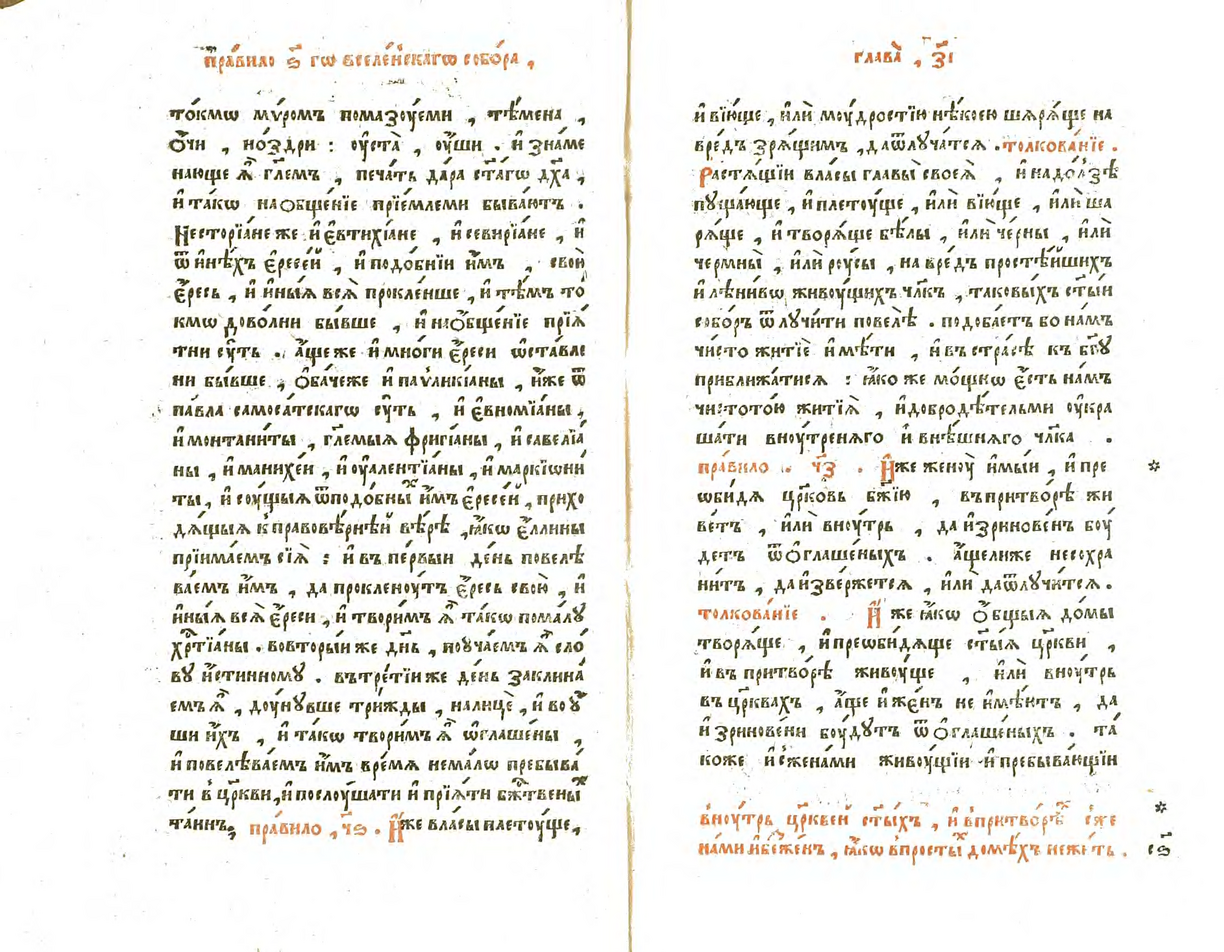 пра́вило ѕ҃ гѡ вселе́нскагѡ собо́ра ,
то́кмѡ мѵ́ромъ помазꙋ́еми , тѣ́мена ,
ѻ́чи , но́здри : оуста̀ , оу́ши . и҆ зна́ме
нающе ѧ҆̀ гл҃емъ , печа́ть да́ра ст҃а́гѡ дх҃а ,
и҆ та́кѡ на ѻбще́нїе прїе́млеми быва́ютъ .
Несторїа́не же и҆ є҆втихїа́не , и҆ севирїа́не , и҆
ѿ и҆нѣ́хъ є҆ресе́й , и҆ подо́бнїи и҆̀мъ , свою̀
є҆́ресь , и҆ и҆ны́ѧ всѧ̀ прокле́нше , и҆ тѣ́мъ то́
кмѡ дово́лни бы́вше , и҆ на ѻбще́нїе прїѧ́
тни сꙋ́ть . а҆́ще же и҆ мно́ги є҆́реси ѡ҆ста́вле
ни бы́вше , ѻба́че же и҆ паѵликїа́ны , и҆́же ѿ
па́вла самоса́тскагѡ сꙋ́ть , и҆ є҆вномїа́ны ,
и҆ монтани́ты , гл҃емыѧ фриги́аны , и҆ савелїа́
ны , и҆ манихе́и , и҆ оуалентїа́ны , и҆ маркїѡни́
ты , и҆ соу́щыѧ ѿ подо́бныⷯ и҆̀мъ є҆ресе́й , прихо
дѧ́щыѧ к правовѣ́рнѣй вѣ́рѣ , ꙗ҆́кѡ є҆́ллины
прїима́емъ сїѧ̀ : и҆ в пе́рвыи де́нь повелѣ
ва́емъ и҆̀мъ , да проклену́тъ є҆́ресь свою̀ , и҆
и҆ны́ѧ всѧ̀ є҆́реси , и҆ твори́мъ ѧ҆̀ та́кѡ пома́лꙋ
хр҇тїа́ны . во вторы́и же дн҃ь , поуча́емъ ѧ҆̀ сло́
вꙋ и҆́стинномꙋ . въ тре́тїи же де́нь заклина́
емъ ѧ҆̀ , доу́нꙋвше три́жды , на лицѐ , и҆ во оу́
ши и҆́хъ , и҆ та́кѡ твори́мъ ѧ҆̀ ѡ҆глаше́ны ,
и҆ повелѣва́емъ и҆̀мъ вре́мѧ нема́лѡ пребыва́
ти в цр҃кви , и҆ послоу́шати и҆ прїѧ́ти бж҇твены́ⷯ
та́инъ . пра́вило , ч҃ѕ . И҆́же власы̀ плетоу́ще ,
глава̀ , з҃і
и҆ вїю́ще , и҆лѝ моу́дростїю нѣ́коею шѧрѧ́ще на
вре́дъ зрѧ́щимъ , да ѿлуча́тсѧ . толкова́нїе .
Растѧ́щїи власы̀ главы̀ своеѧ̀ , и҆ надо́лзѣ
пꙋща́юще , и҆ плетоу́ще , и҆лѝ вїю́ще , и҆лѝ ша
рѧ́ще , и҆ творѧ́ще бѣ́лы , и҆лѝ че́рны , и҆лѝ
че́рмны , и҆лѝ роу́сы , на вре́дъ простѣ́йшихъ
и҆ лѣни́вѡ живоу́щихъ чл҃къ , таковы́хъ ст҃ы́и
собо́ръ ѿлучи́ти повелѣ̀ . подоба́етъ бо на́мъ
чи́сто житїѐ и҆мѣ́ти , и҆ въ стра́сѣ къ бг҃ꙋ
приближа́тисѧ : ꙗ҆́ко же мо́щнѡ є҆́сть на́мъ
чистото́ю житїѧ̀ , и҆ добродѣ́тельми оукра
ша́ти вноу́тренѧго и҆ внѣ́шнѧго чл҃ка .
пра́вило . ч҃з . И҆́же женоу̀ и҆мы́и , и҆ пре
ѡби́дѧ цр҃ковь бж҃їю , въ притво́рѣ жи
ве́тъ , и҆лѝ вноу́трь , да и҆зринове́нъ боу́
детъ ѿ ѻглаше́ныхъ . а҆́ще ли же не сохра
ни́тъ , да и҆зве́ржетсѧ , и҆ли да ѿлучи́тсѧ .
толкова́нїе . И҆̀ же ꙗ҆́кѡ ѻ́бщыѧ до́мы
творѧ́ще , и҆ преѡби́дѧще ст҃ы́ѧ цр҃кви ,
и҆ въ притво́рѣ живоу́ще , и҆лѝ вноу́трь
въ цр҃квахъ , а҆́ще и҆ же́нъ не и҆мѣ́ютъ , да
и҆зринове́ни боу́дутъ ѿ ѻглаше́ныхъ . та́
коже и҆ с жена́ми живоу́щїи и҆ пребыва́ющїи
вноу́трь цр҃кве́й ст҃ы́хъ , и҆ в притво́рѣⷯ с же
на́ми и҆ бе́жен , ꙗ҆́кѡ в про́стыⷯ домѣ́хъ не жи́ть .
*
*
сѕ҃